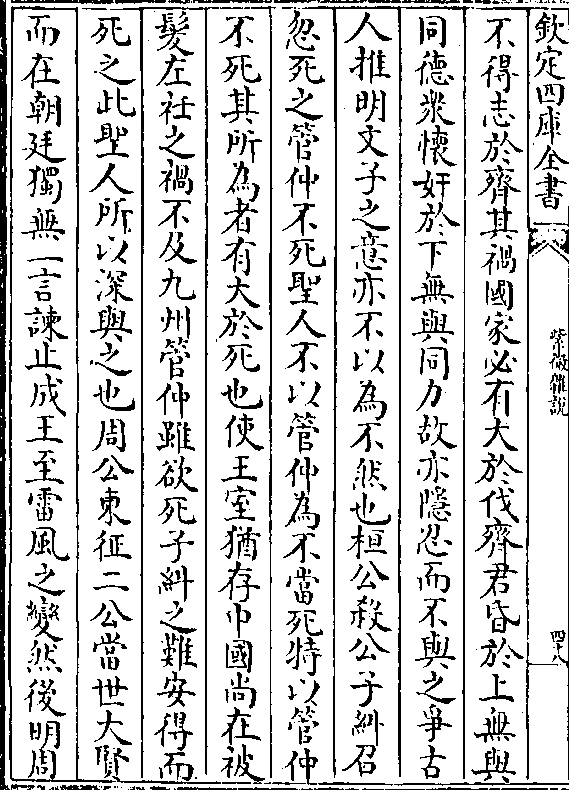 欽定四庫全書
紫微雜說
四十八
不得志於齊其禍國家必有大於伐齊君昏於上無與
同德衆懷奸於下無與同力故亦隱忍而不與之爭古
人推明文子之意亦不以為不然也桓公殺公子糾召
忽死之管仲不死聖人不以管仲為不當死特以管仲
不死其所為者有大於死也使王室猶存中國尚在被
髮左衽之禍不及九州管仲雖欲死子糾之難安得而
死之此聖人所以深與之也周公東征二公當世大賢
而在朝廷獨無一言諫止成王至雷風之變然後明周